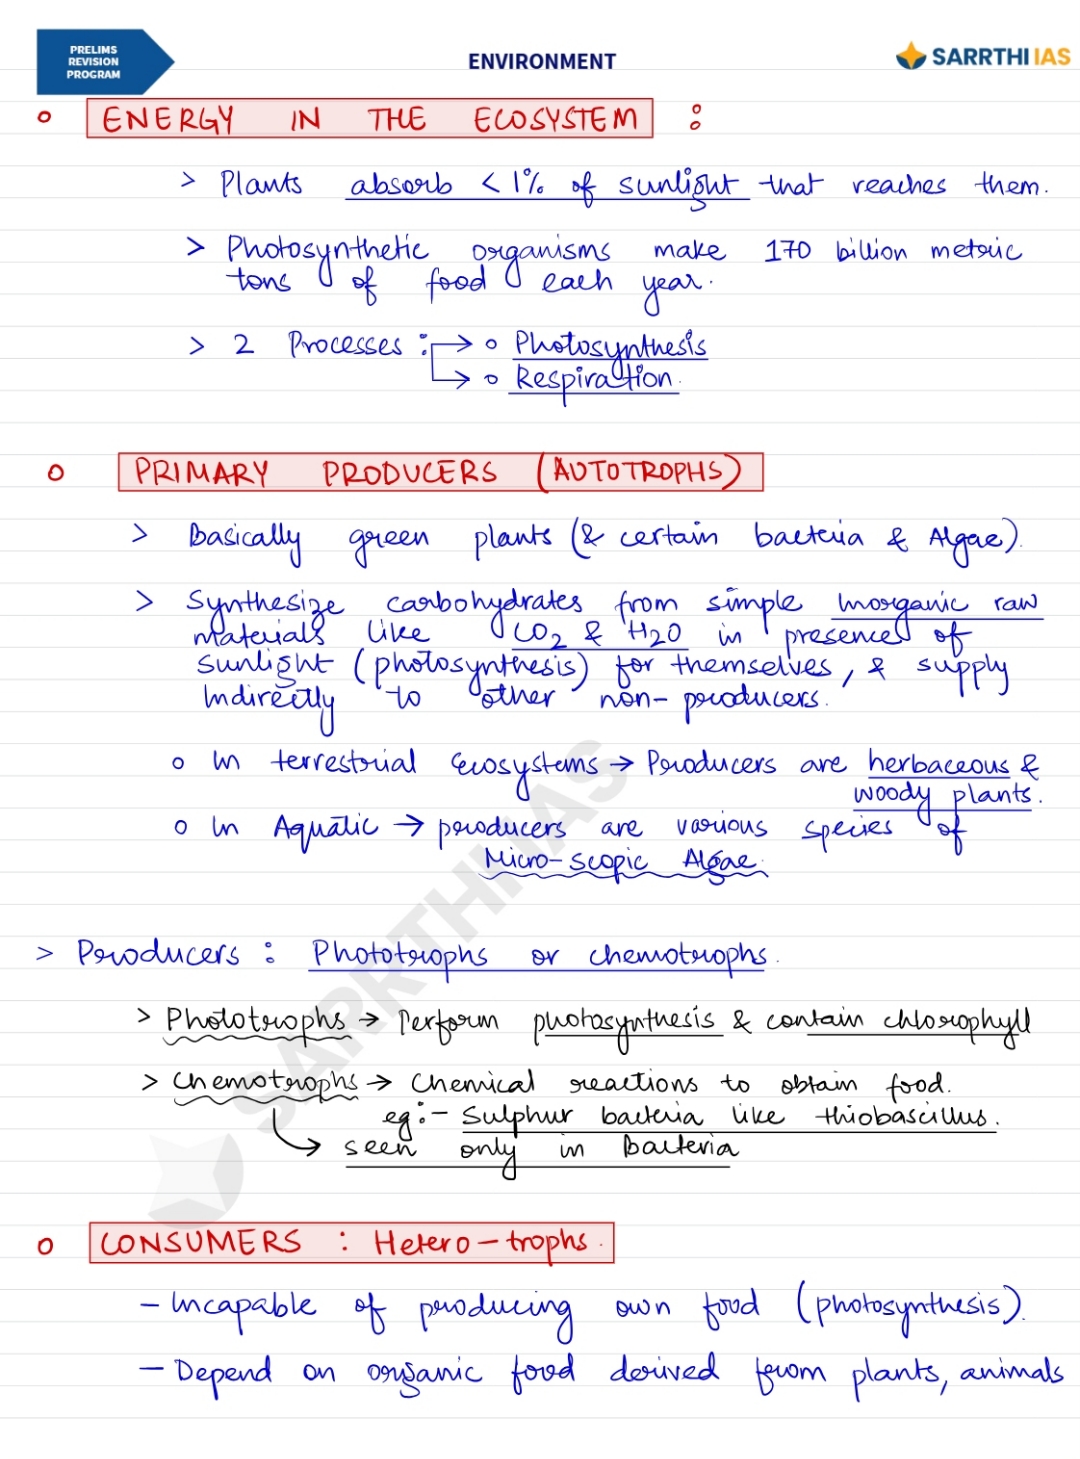 PRELIMS
REVISION
PROGRAM
ENVIRONMENT
SARRTHI IAS
o ENERGY IN THE ECOSYSTEM :
> Plants absorb < 1% of sunlight that reaches them.
> Photosynthetic organisms make 170 billion metric
tons of food each year.
> 2 Processes : → o Photosynthesis
→ o Respiration.
o PRIMARY PRODUCERS (AUTOTROPHS)
> Basically green plants (& certain bacteria & Algae).
> Synthesize carbohydrates from simple inorganic raw
materials like CO2 & H2O in presence of
sunlight (photosynthesis) for themselves, & supply
Indirectly to other non-producers.
o In terrestrial Ecosystems → Producers are herbaceous &
woody plants.
o In Aquatic → producers are various species of
Micro-scopic Algae.
> Producers : Phototrophs or chemotrophs.
> Phototrophs → Perform photosynthesis & contain chlorophyll
> Chemotrophs → Chemical reactions to obtain food.
eg:- Sulphur bacteria like thiobascillus.
→ seen only in Bacteria
o CONSUMERS : Hetero-trophs.
- Incapable of producing own food (photosynthesis).
- Depend on organic food derived from plants, animals
SARRTHI IAS